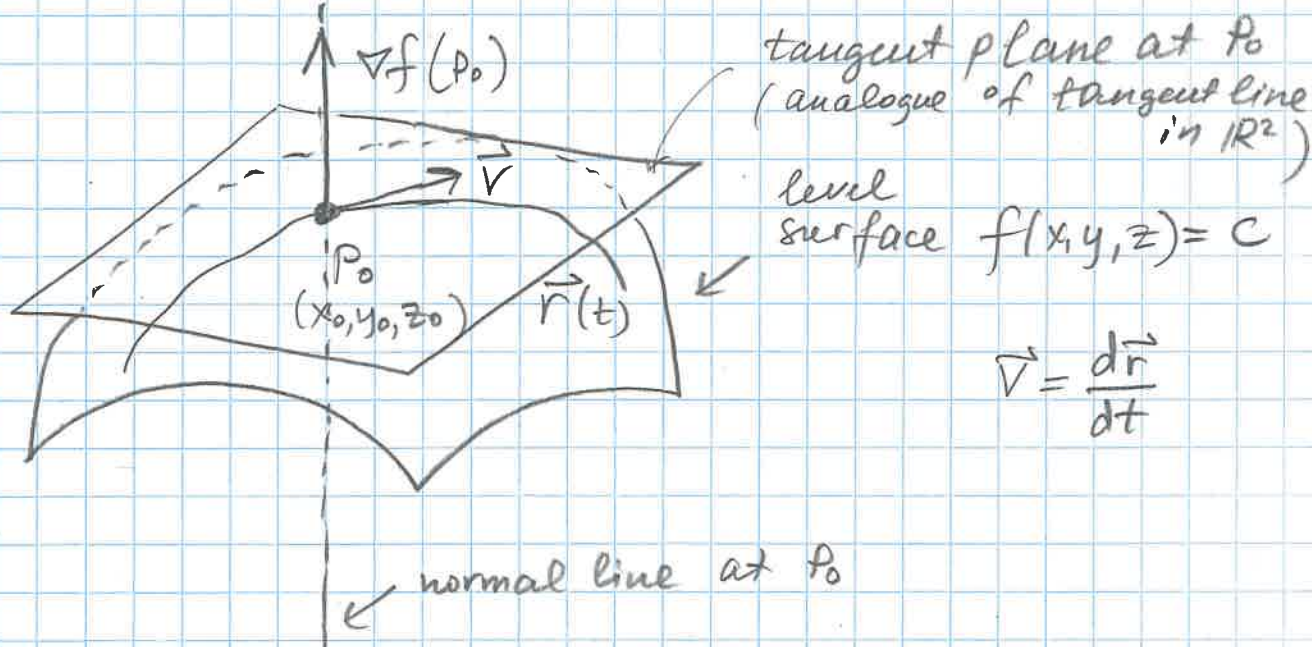 ∇f(P₀)
tangent plane at P₀
(analogue of tangent line
in ℝ²)
v⃗
level
surface f(x,y,z)= C
P₀
(x₀,y₀,z₀)
r⃗(t)
v⃗ = dr⃗/dt
normal line at P₀